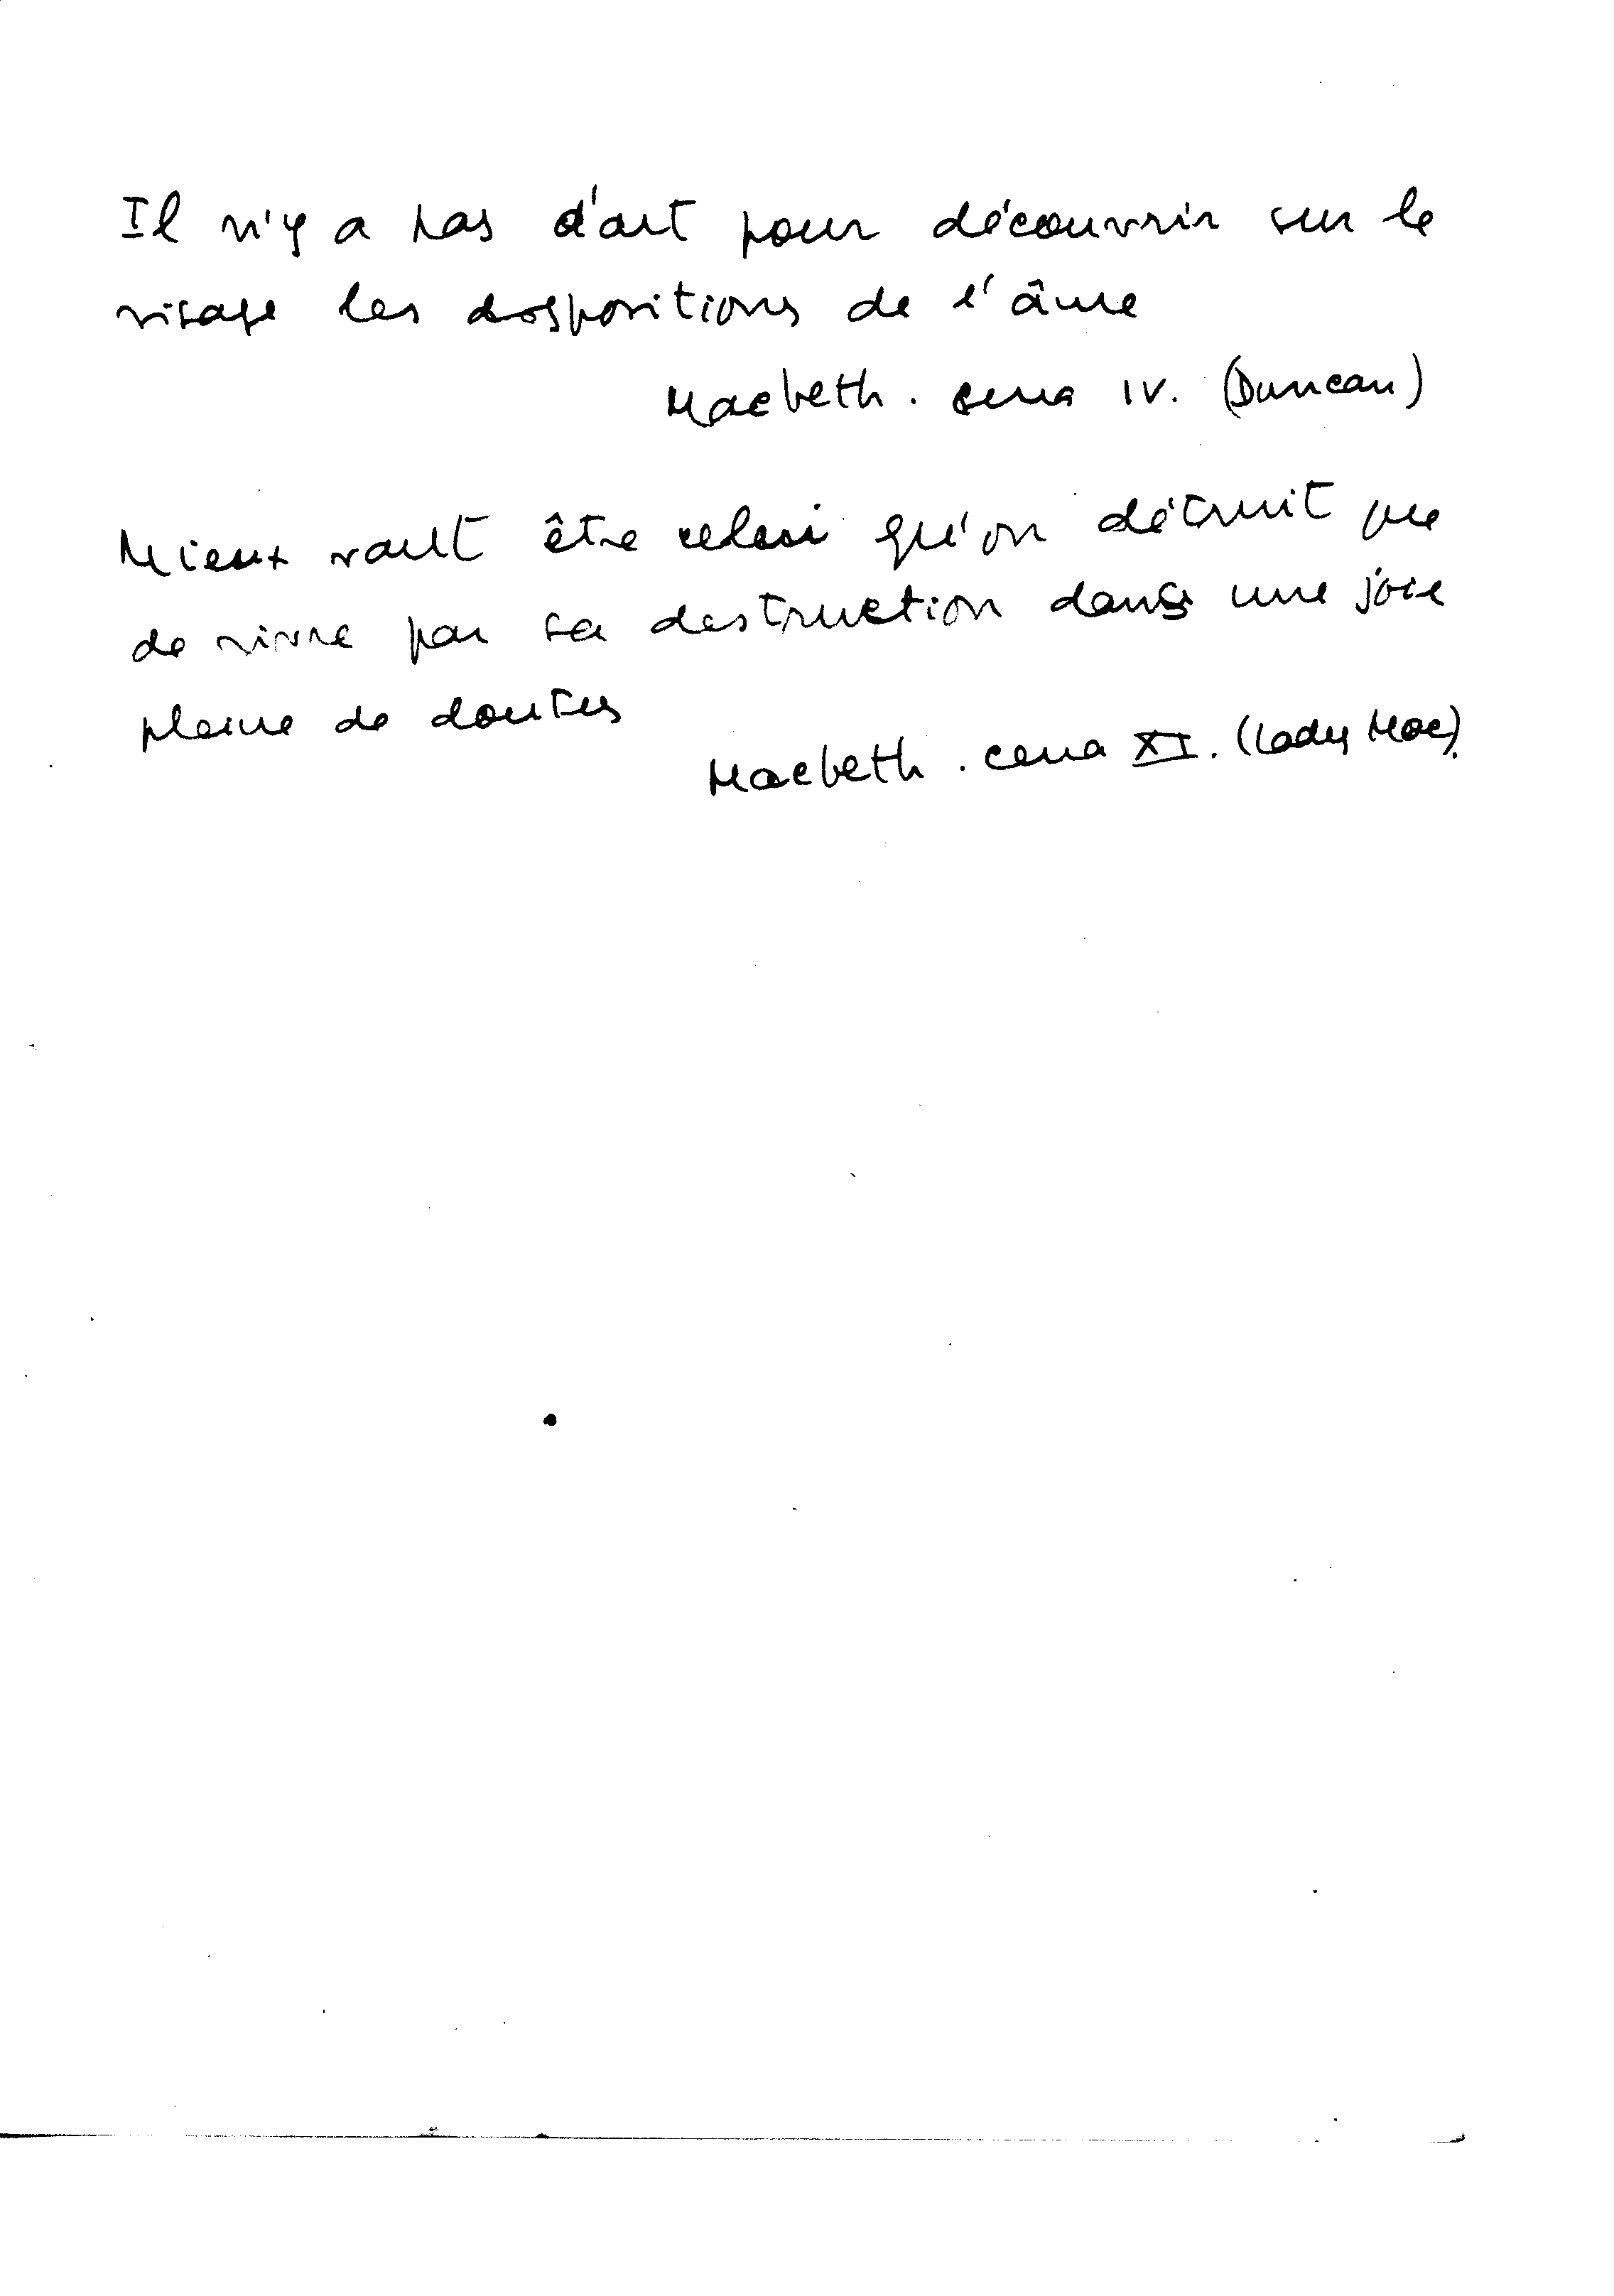 Il n'y a pas d'art pour découvrir sur le
visage les dispositions de l'âme
Macbeth. cena IV. (Duncan)
Mieux vault être celui qu'on détruit que
de vivre par sa destruction dans une joie
pleine de doutes
Macbeth. cena XI. (Lady Mac).